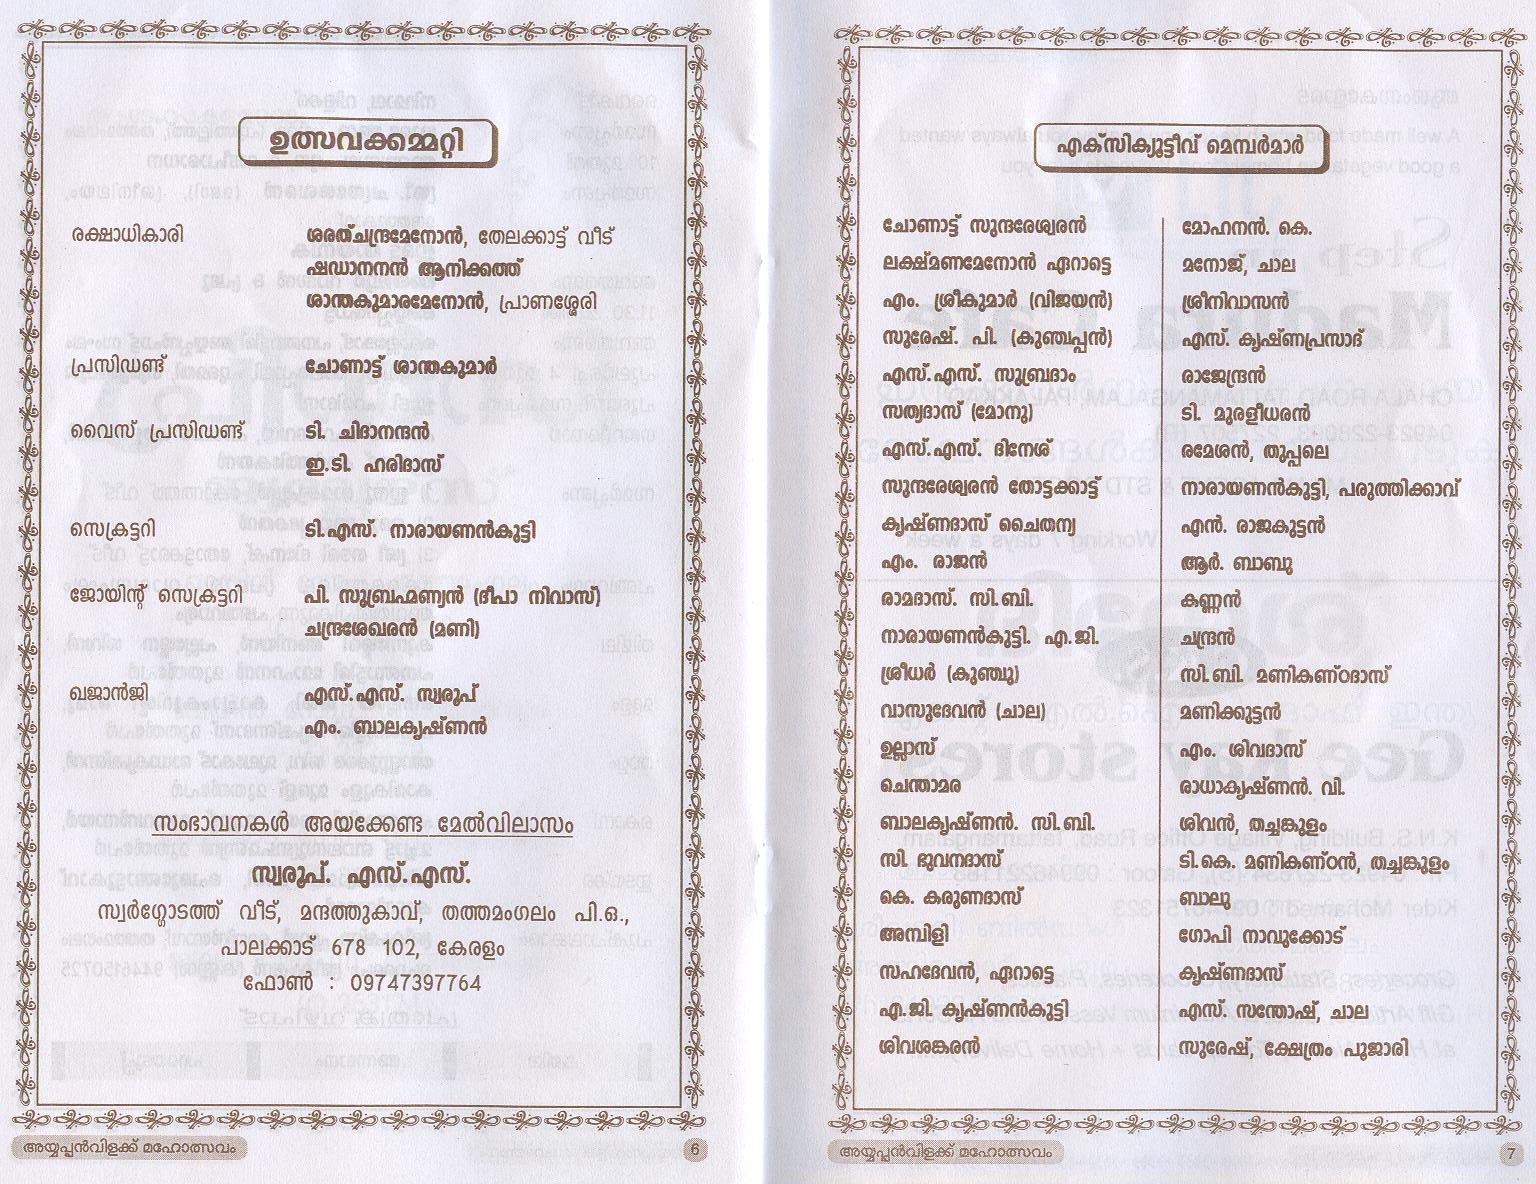 ഉത്സവക്കമ്മറ്റി
രക്ഷാധികാരി ശരത്ചന്ദ്രമേനോൻ, തേലക്കാട്ട് വീട്
ഷഡാനനൻ ആനിക്കത്ത്
ശാന്തകുമാരമേനോൻ, പ്രാണശ്ശേരി
പ്രസിഡണ്ട് ചോണാട്ട് ശാന്തകുമാർ
വൈസ് പ്രസിഡണ്ട് ടി. ചിദാനന്ദൻ
ഇ.ടി. ഹരിദാസ്
സെക്രട്ടറി ടി.എസ്. നാരായണൻകുട്ടി
ജോയിന്റ് സെക്രട്ടറി പി. സുബ്രഹ്മണ്യൻ (ദീപാ നിവാസ്)
ചന്ദ്രശേഖരൻ (മണി)
ഖജാൻജി എസ്.എസ്. സ്വരൂപ്
എം. ബാലകൃഷ്ണൻ
സംഭാവനകൾ അയക്കേണ്ട മേൽവിലാസം
സ്വരൂപ്. എസ്.എസ്.
സ്വർഗ്ഗോടത്ത് വീട്, മന്ദത്തുകാവ്, തത്തമംഗലം പി.ഒ.,
പാലക്കാട് 678 102, കേരളം
ഫോൺ : 09747397764
അയ്യപ്പൻവിളക്ക് മഹോത്സവം 6
എക്സിക്യൂട്ടിവ് മെമ്പർമാർ
ചോണാട്ട് സുന്ദരേശ്വരൻ
ലക്ഷ്മണമേനോൻ ഏറാട്ടെ
എം. ശ്രീകുമാർ (വിജയൻ)
സുരേഷ്. പി. (കുഞ്ചപ്പൻ)
എസ്.എസ്. സുബ്രദാം
സത്യദാസ് (മോനു)
എസ്.എസ്. ദിനേശ്
സുന്ദരേശ്വരൻ തോട്ടക്കാട്ട്
കൃഷ്ണദാസ് ചൈതന്യ
എം. രാജൻ
രാമദാസ്. സി.ബി.
നാരായണൻകുട്ടി. എ.ജി.
ശ്രീധർ (കുഞ്ചു)
വാസുദേവൻ (ചാല)
ഉല്ലാസ്
ചെന്താമര
ബാലകൃഷ്ണൻ. സി.ബി.
സി. ഭുവനദാസ്
കെ. കരുണദാസ്
അമ്പിളി
സഹദേവൻ, ഏറാട്ടെ
എ.ജി. കൃഷ്ണൻകുട്ടി
ശിവശങ്കരൻ
മോഹനൻ. കെ.
മനോജ്, ചാല
ശ്രീനിവാസൻ
എസ്. കൃഷ്ണപ്രസാദ്
രാജേന്ദ്രൻ
ടി. മുരളീധരൻ
രമേശൻ, തുപ്പലെ
നാരായണൻകുട്ടി, പരുത്തിക്കാവ്
എൻ. രാജകുട്ടൻ
ആർ. ബാബു
കണ്ണൻ
ചന്ദ്രൻ
സി.ബി. മണികണ്ഠദാസ്
മണിക്കുട്ടൻ
എം. ശിവദാസ്
രാധാകൃഷ്ണൻ. വി.
ശിവൻ, തച്ചങ്കുളം
ടി.കെ. മണികണ്ഠൻ, തച്ചങ്കുളം
ബാലു
ഗോപി നാവുക്കോട്
കൃഷ്ണദാസ്
എസ്. സന്തോഷ്, ചാല
സുരേഷ്, ക്ഷേത്രം പൂജാരി
അയ്യപ്പൻവിളക്ക് മഹോത്സവം 7